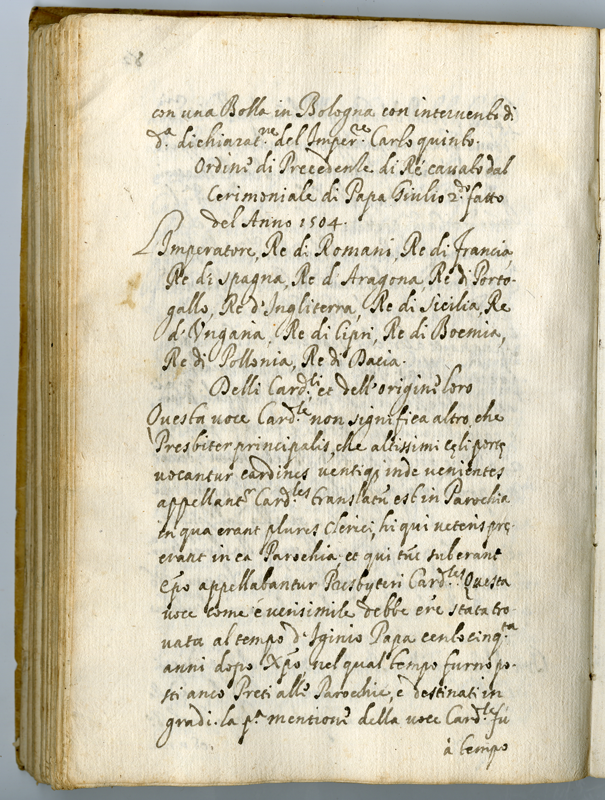 con una Bolla in Bologna con intervento di
d.a dichiarat.ne del Imper.re Carlo quinto.
Ordine di Precedense di Re cauato dal
Cerimoniale di Papa Giulio 2.do fatto
del Anno 1504.
L'Imperatore, Re di Romani, Re di Francia
Re di Spagna, Re d'Aragona Re di Porto-
gallo, Re d'Ingliterra, Re di Sicilia, Re
d'Vngaria, Re di Cipri, Re di Boemia,
Re di Pollonia, Re di Dacia.
Delli Card.li et dell'origine loro
Questa uoce Card.le non significa altro, che
Presbiter principalis, che altissimi cęli portę
uocantur cardines uentiq; inde uenientes
appellant.r Card.les translatũ est in Parochia
in qua erant plures Clerici, hi qui ueteris prę-
erant in ea Parochia et qui tũc suberant
Ep̃o appellabantur Presbyteri Card.les Questa
uoce come è uerisimile debbe ere stata tro-
uata al tempo d'Iginio Papa cento cinq.ta
anni dopo Xp̃o nel qual tempo furno po-
sti anco Preti alle Parochie, e destinati in
gradi. la p.a mentione della uoce Card.le fù
à tempo